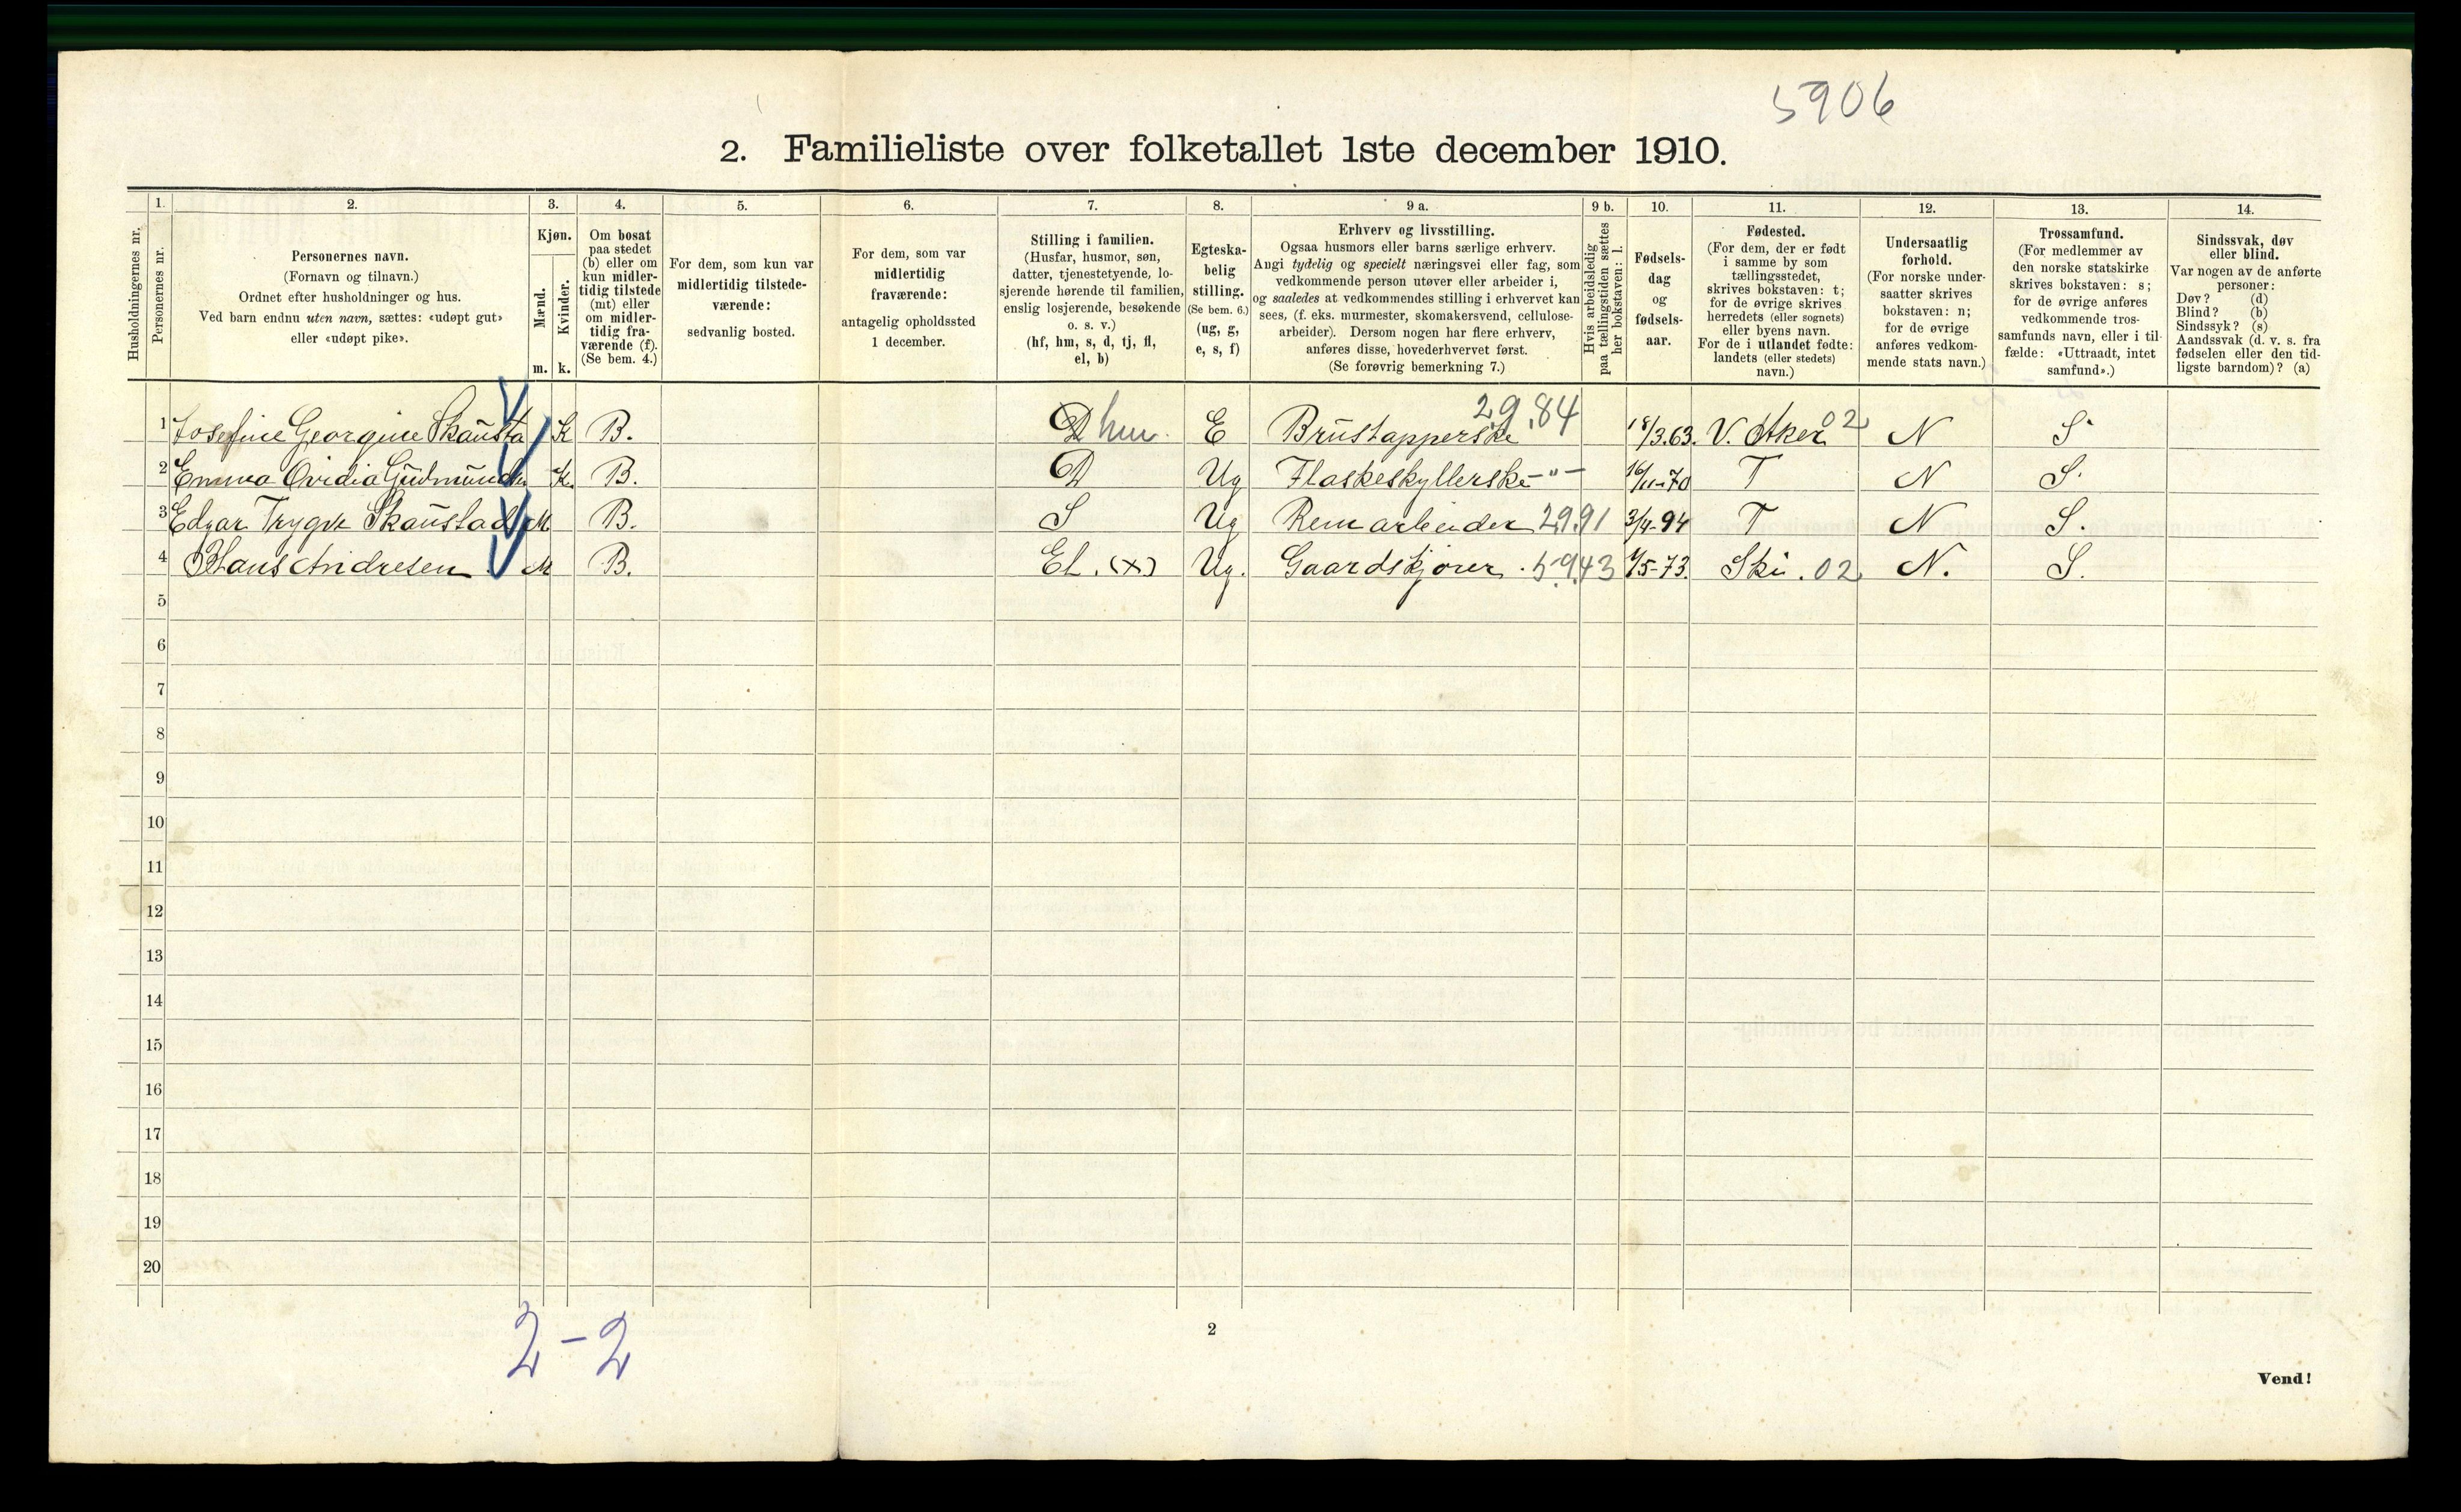 5906
2. Familieliste over folketallet 1ste december 1910.
Husholdningernes nr.
1.
Personernes nr.
2.
Personernes navn.
(Fornavn og tilnavn.)
Ordnet efter husholdninger og hus.
Ved barn endnu uten navn, sættes: «udøpt gut»
eller «udøpt pike».
3.
Kjøn.
Mænd.
Kvinder.
m. k.
4.
Om bosat
paa stedet
(b) eller om
kun midler-
tidig tilstede
(mt) eller
om midler-
tidig fra-
værende (f).
(Se bem. 4.)
5.
For dem, som kun var
midlertidig tilstede-
værende:
sedvanlig bosted.
6.
For dem, som var
midlertidig
fraværende:
antagelig opholdssted
1 december.
7.
Stilling i familien.
(Husfar, husmor, søn,
datter, tjenestetyende, lo-
sjerende hørende til familien,
enslig losjerende, besøkende
o. s. v.)
(hf, hm, s, d, tj, fl,
el, b)
8.
Egteska-
belig
stilling.
(Se bem. 6.)
(ug, g,
e, s, f)
9 a.
Erhverv og livsstilling.
Ogsaa husmors eller barns særlige erhverv.
Angi tydelig og specielt næringsvei eller fag, som
vedkommende person utøver eller arbeider i,
og saaledes at vedkommendes stilling i erhvervet kan
sees, (f. eks. murmester, skomakersvend, cellulose-
arbeider). Dersom nogen har flere erhverv,
anføres disse, hovederhvervet først.
(Se forøvrig bemerkning 7.)
9 b.
Hvis arbeidsledig
paa tællingstiden sættes
her bokstaven: l.
10.
Fødsels-
dag
og
fødsels-
aar.
11.
Fødested.
(For dem, der er født
i samme by som
tællingsstedet,
skrives bokstaven: t;
for de øvrige skrives
herredets (eller sognets)
eller byens navn.
For de i utlandet fødte:
landets (eller stedets)
navn.)
12.
Undersaatlig
forhold.
(For norske under-
saatter skrives
bokstaven: n;
for de øvrige
anføres vedkom-
mende stats navn.)
13.
Trossamfund.
(For medlemmer av
den norske statskirke
skrives bokstaven: s;
for de øvrige anføres
vedkommende tros-
samfunds navn, eller i til-
fælde: «Uttraadt, intet
samfund».)
14.
Sindssvak, døv
eller blind.
Var nogen av de anførte
personer:
Døv? (d)
Blind? (b)
Sindssyk? (s)
Aandssvak (d. v. s. fra
fødselen eller den tid-
ligste barndom)? (a)
1 Josefine Georgine Skausta K B. D hm. E Brustapperske 29.84 18/3.63. V. Aker 02 N S.
2 Emma Ovidia Gudmunds K. B. D Ug Flaskeskyllerske -"- 16/11-70 T N S.
3 Edgar Trygve Skaustad M B. S Ug Remarbeider 29.91 3/4-94 T N S.
4 Hans Andresen M B. El. (X) Ug. Gaardskjører. 59.43 1/5-73. Ski. 02 N. S.
5
6
7
8
9
10
11
12
13
14
15
16
17
18
19
20
2-2
2
Vend!